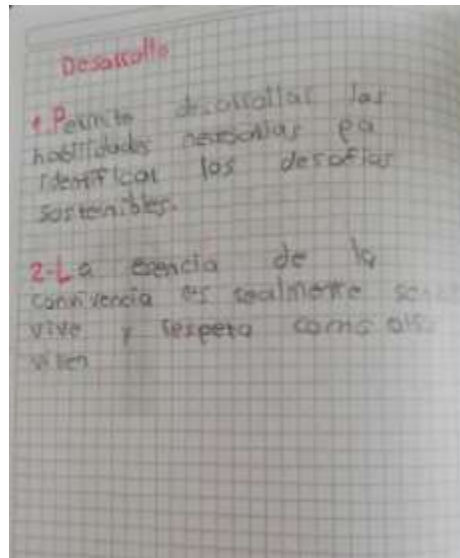 Desarrollo
1. Permite desarrollar las
habilidades necesarias pa
identificar los desafios
sostenibles.
2-La esencia de la
convivencia es realmente
vive y respeta como
viven